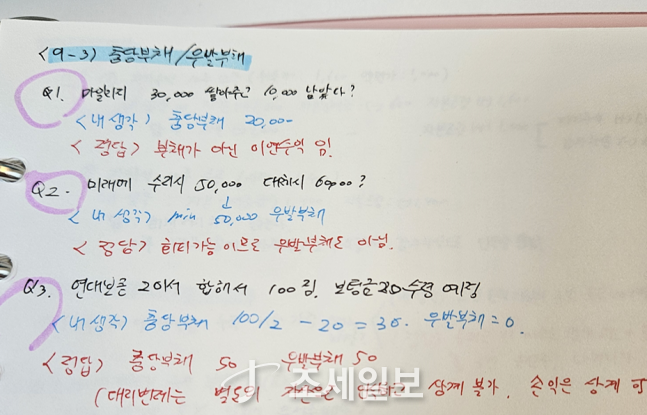 <9-3> 충당부채/우발부채
Q1. 마일리지 30,000 쌓아주고 10,000 남았다?
<내 생각> 충당부채 20,000-
<정답> 부채가 아닌 이연수익 임!
Q2. 미래에 수리시 50,000 대체시 60,000?
↓
<내 생각> min 50,000 우발부채
<정답> 회피가능 이므로 우발부채도 아님.
Q3. 연대보증 2아서 합해서 100짐. 보령금20수령 예정
<내 생각> 충당부채 100/2 - 20 = 30. 우발부채=0.
<정답> 충당부채 50 우발부채 50
(대리변제는 별도의 자산으로 상계 불가. 손익은 상계 가
조세일보